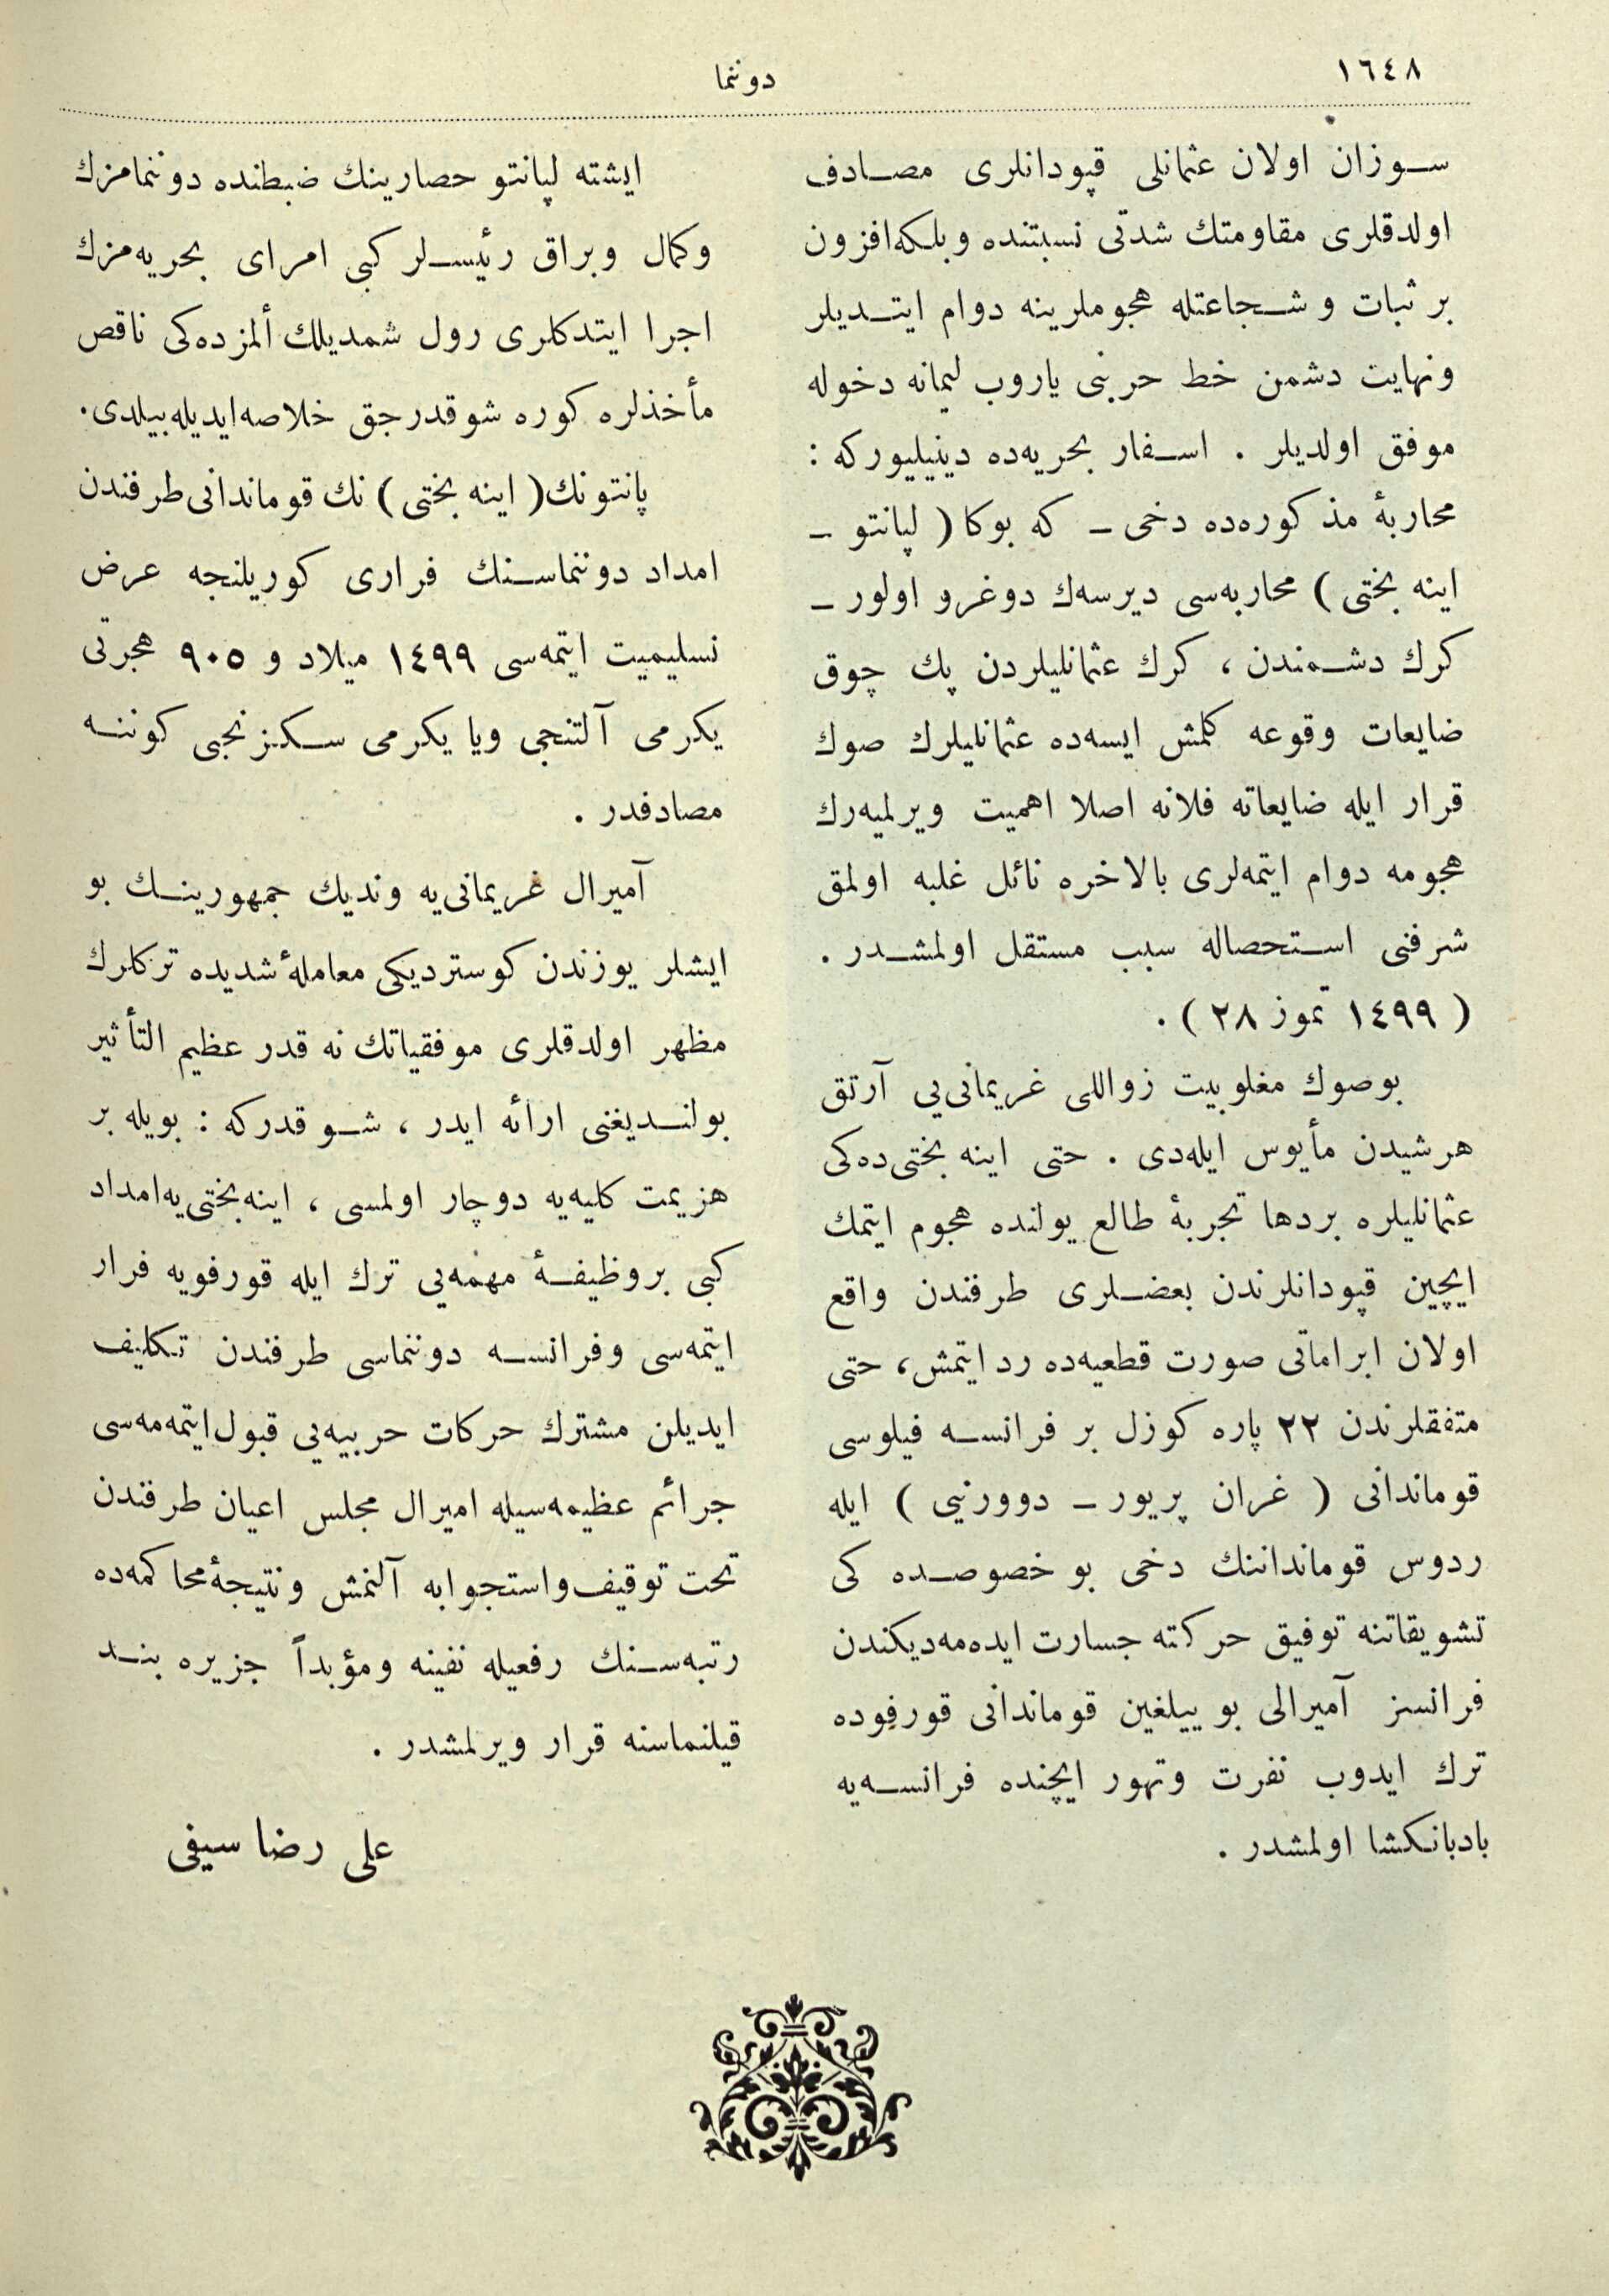 ١٦٤٨
دوننما
سوزان اولان عثمانلی قپودانلری مصادف
اولدقلری مقاومتك شدتی نسبتنده وبلكه‌افزون
بر ثبات و شجاعتله هجوملرینه دوام ایتدیلر
ونهایت دشمن خط حربنی یاروب لیمانه دخوله
موفق اولدیلر . اسفار بحریه‌ده دینیلیوركه :
محاربۀ مذكوره‌ده دخی ـ كه بوكا ( لپانتو ـ
اینه بختی ) محاربه‌سی دیرسه‌ك دوغرو اولور ـ
كرك دشمندن ، كرك عثمانلیلردن پك چوق
ضایعات وقوعه كلمش ایسه‌ده عثمانلیلرك صوك
قرار ایله ضایعاته فلانه اصلا اهمیت ویرلمیه‌رك
هجومه دوام ایتمه‌لری بالاخره نائل غلبه اولمق
شرفنی استحصاله سبب مستقل اولمشدر .
( ١٤٩٩ تموز ٢٨ ) .
بوصوك مغلوبیت زواللی غریمانی‌یی آرتق
هر شیدن مأیوس ایله‌دی . حتی اینه بختی‌ده‌كی
عثمانلیلره بردها تجربۀ طالع یولنده هجوم ایتمك
ایچین قپودانلرندن بعضلری طرفندن واقع
اولان ابراماتی صورت قطعیه‌ده رد ایتمش، حتی
متفقلرندن ٢٢ پاره كوزل بر فرانسه فیلوسی
قوماندانی ( غران پریور ـ دوورنیی ) ایله
ردوس قومانداننك دخی بو خصوصده كی
تشویقاتنه توفیق حركته جسارت ایده‌مه‌دیكندن
فرانسز آمیرالی بو ییلغین قوماندانی قورفوده
ترك ایدوب نفرت وتهور ایچنده فرانسه‌یه
بادبانكشا اولمشدر .
ایشته لپانتو حصارینك ضبطنده دوننمامزك
وكمال وبراق رئیسلر كبی امرای بحریه‌مزك
اجرا ایتدكلری رول شمدیلك ألمزده‌كی ناقص
مأخذلره كوره شوقدرجق خلاصه‌ایدیله‌بیلدی.
پانتونك ( اینه بختی ) نك قوماندانی طرفندن
امداد دوننماسنك فراری كوریلنجه عرض
نسلیمیت ایتمه‌سی ١٤٩٩ میلاد و ٩٠٥ هجرتی
یكرمی آلتنجی ویا یكرمی سكزنجی كوننه
مصادفدر .
آمیرال غریمانی‌یه وندیك جمهورینك بو
ایشلر یوزندن كوستردیكی معاملۀ شدیده تركلرك
مظهر اولدقلری موفقیاتك نه قدر عظیم التأثیر
بولندیغنی ارائه ایدر ، شو قدركه : بویله بر
هزیمت كلیه‌یه دوچار اولمسی ، اینه‌بختی‌یه‌امداد
كبی بر وظیفۀ مهمه‌یی ترك ایله قورفویه فرار
ایتمه‌سی وفرانسه دوننماسی طرفندن تكلیف
ایدیلن مشترك حركات حربیه‌یی قبول‌ایتمه‌مه‌سی
جرائم عظیمه‌سیله امیرال مجلس اعیان طرفندن
تحت توقیف‌واستجوابه آلنمش ونتیجۀ‌محاكمه‌ده
رتبه‌سنك رفعیله نفینه ومؤبداً جزیره بند
قیلنماسنه قرار ویرلمشدر .
علی رضا سیفی